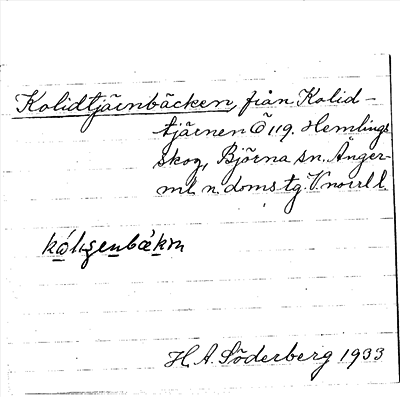 Kolidtjärnbäcken, från Kolid-
tjärnen Ö 119. Hemlings
skog, Björna sn. Ånger-
ml. n. doms tg. V.norrl l.
H. A. Söderberg 1933